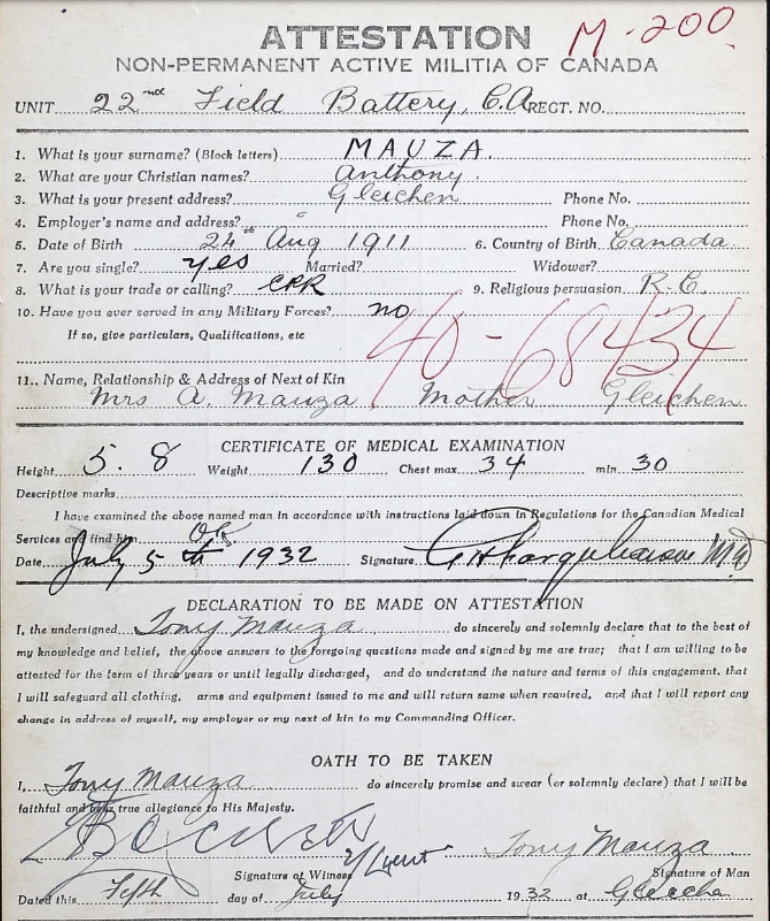 ATTESTATION M-200
NON-PERMANENT ACTIVE MILITIA OF CANADA
UNIT 22nd Field Battery, C.A. REGT. NO.
1. What is your surname? (Block letters) MAUZA.
2. What are your Christian names? Anthony.
3. What is your present address? Gleichen Phone No.
4. Employer's name and address? Phone No.
5. Date of Birth 24th Aug 1911 6. Country of Birth Canada
7. Are you single? yes Married? Widower?
8. What is your trade or calling? CPR 9. Religious persuasion R.C.
10. Have you ever served in any Military Forces? no
If so, give particulars, Qualifications, etc
40-68434
11.. Name, Relationship & Address of Next of Kin
Mrs A. Mauza, Mother Gleichen
CERTIFICATE OF MEDICAL EXAMINATION
Height 5.8 Weight 130 Chest max. 34 min 30
Descriptive marks
I have examined the above named man in accordance with instructions laid down in Regulations for the Canadian Medical
Services and find him OK
Date July 5th 1932 Signature M.D.
DECLARATION TO BE MADE ON ATTESTATION
I, the undersigned Tony Mauza do sincerely and solemnly declare that to the best of
my knowledge and belief, the above answers to the foregoing questions made and signed by me are true; that I am willing to be
attested for the term of three years or until legally discharged, and do understand the nature and terms of this engagement. that
I will safeguard all clothing, arms and equipment issued to me and will return same when required, and that I will report any
change in address of myself, my employer or my next of kin to my Commanding Officer.
OATH TO BE TAKEN
I, Tony Mauza do sincerely promise and swear (or solemnly declare) that I will be
faithful and bear true allegiance to His Majesty.
2/Lieut Tony Mauza
Signature of Witness Signature of Man
Dated this Fifth day of July 1932 at Gleichen